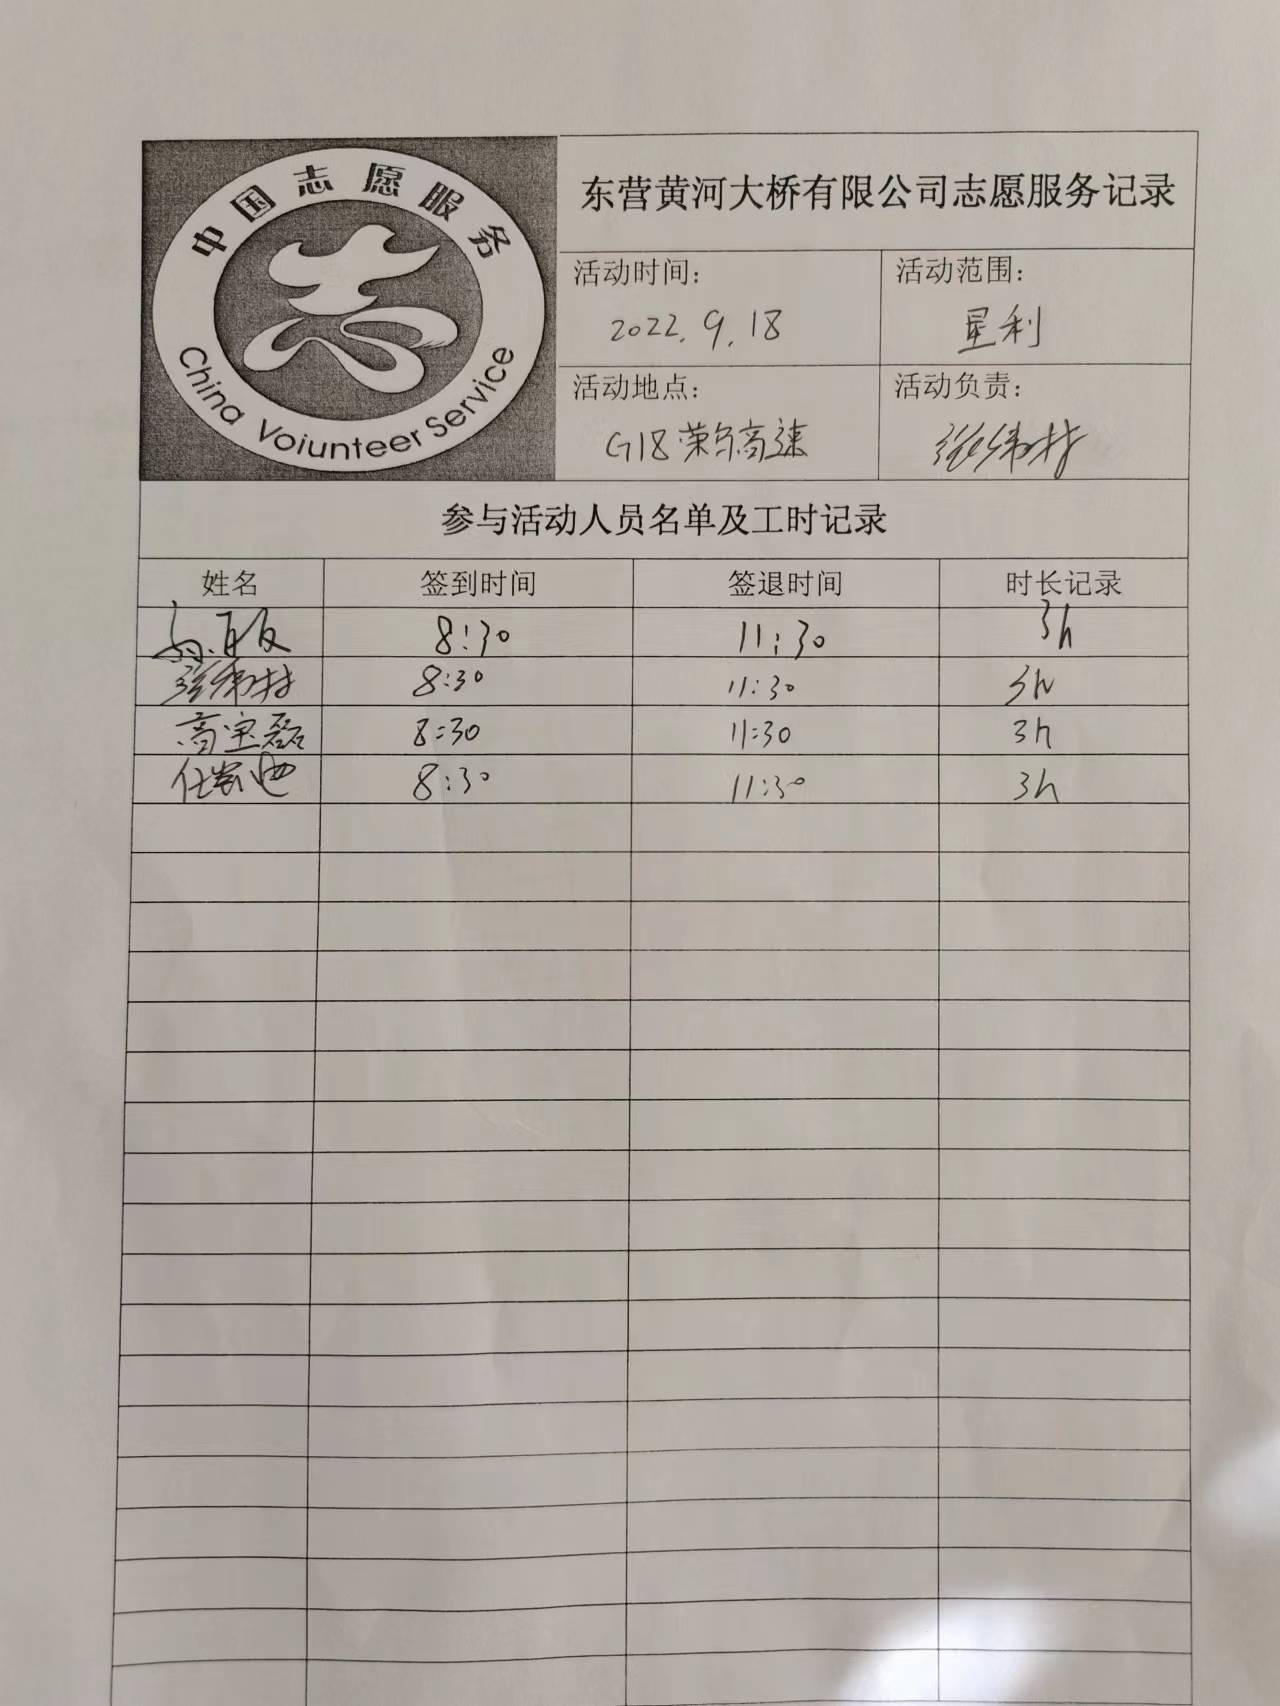 中国志愿服务
China Voiunteer Service
东营黄河大桥有限公司志愿服务记录
活动时间:
活动范围:
2022.9.18
垦利
活动地点:
活动负责:
G18荣乌高速
参与活动人员名单及工时记录
姓名 签到时间 签退时间 时长记录
8:30 11:30 3h
8:30 11:30 3h
高宝磊 8:30 11:30 3h
8:30 11:30 3h